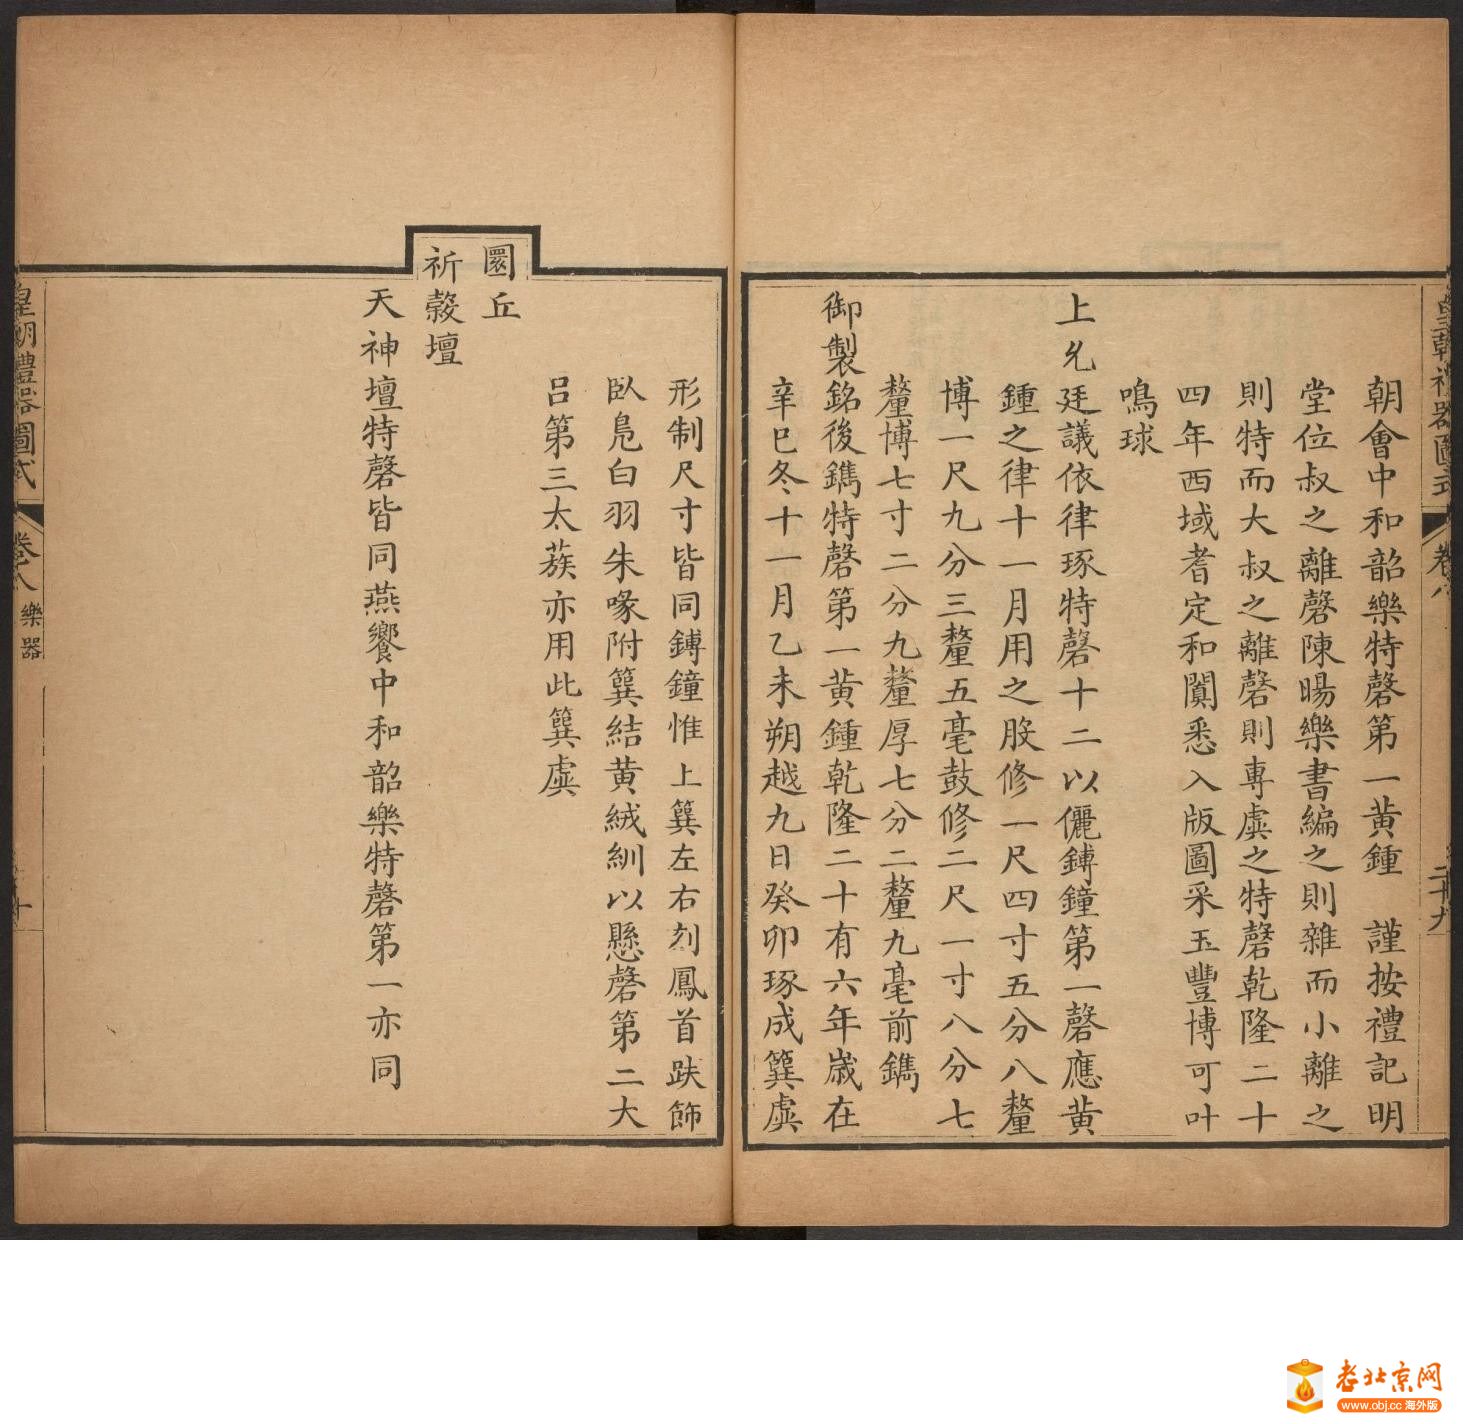 皇朝禮器圖式
卷八
二十九
朝會中和韶樂特磬第一黃鍾　謹按禮記明
堂位叔之離磬陳暘樂書編之則雜而小離之
則特而大叔之離磬則專虡之特磬乾隆二十
四年西域耆定和闐悉入版圖采玉豐博可叶
鳴球
上允廷議依律琢特磬十二以儷鎛鐘第一磬應黃
鍾之律十一月用之股修一尺四寸五分八釐
博一尺九分三釐五毫鼓修二尺一寸八分七
釐博七寸二分九釐厚七分二釐九毫前鐫
御製銘後鐫特磬第一黃鍾乾隆二十有六年歲在
辛巳冬十一月乙未朔越九日癸卯琢成簨虡
形制尺寸皆同鎛鐘惟上簨左右刻鳳首趺飾
臥鳧白羽朱喙附簨結黃絨紃以懸磬第二大
呂第三太蔟亦用此簨虡
圜丘
祈穀壇
天神壇特磬皆同燕饗中和韶樂特磬第一亦同
皇朝禮器圖式
卷八
樂器
老北京网
www.obj.cc 海外版